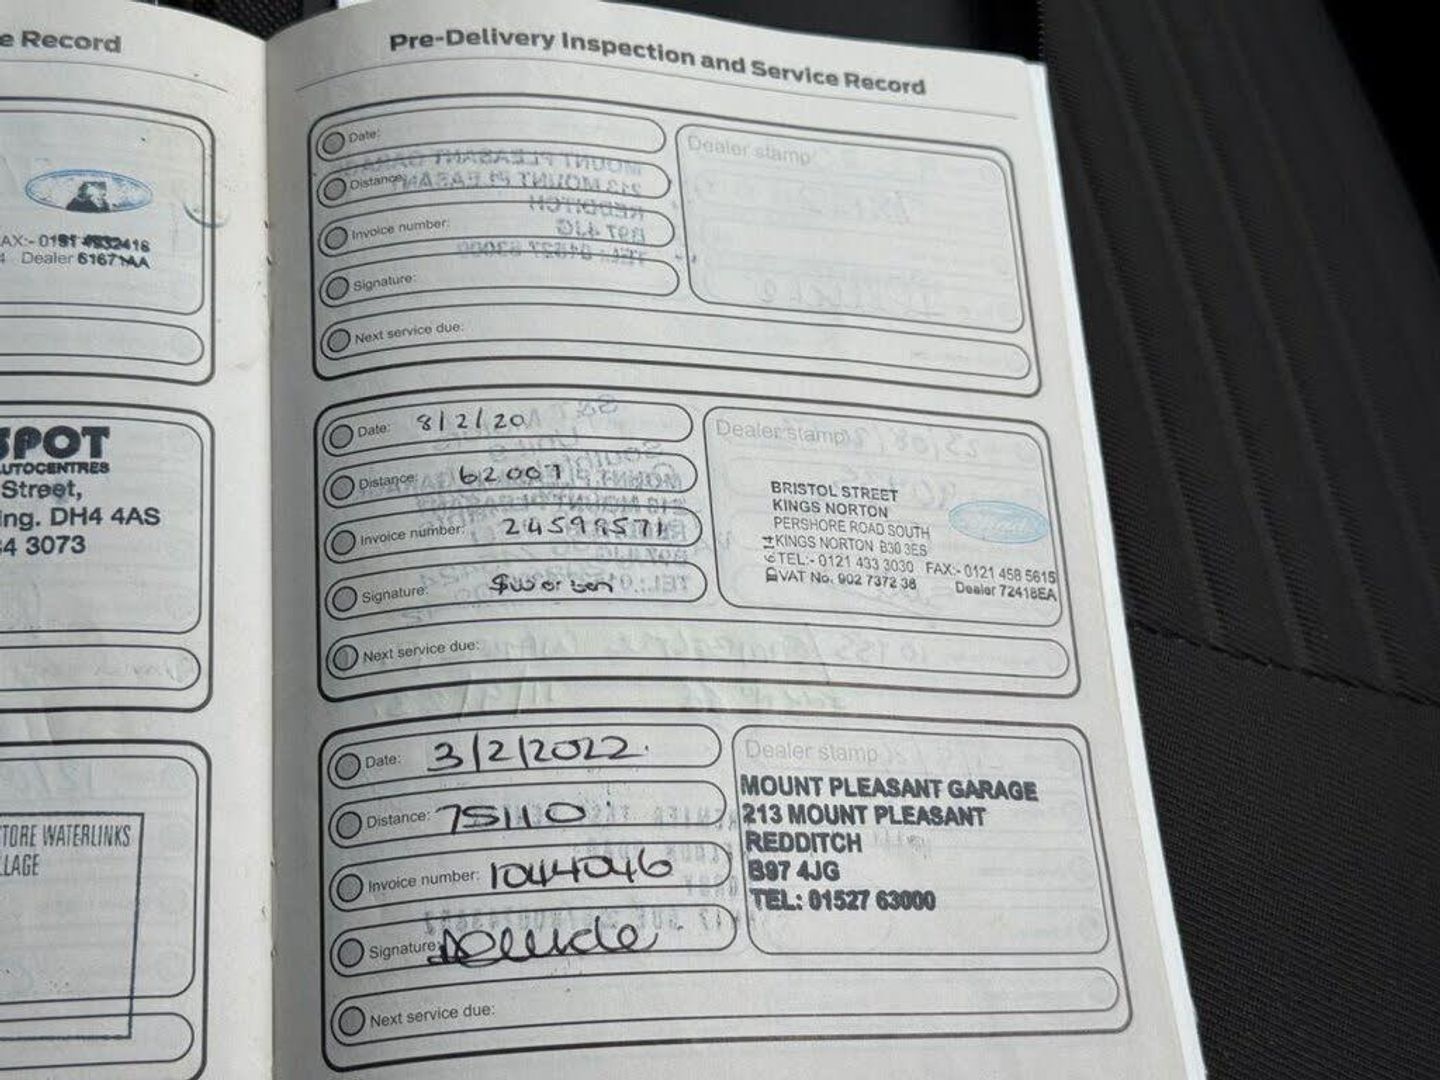 e Record
AX:- 0191 4932416
4 Dealer 61671AA
SPOT
AUTOCENTRES
Street,
ing. DH4 4AS
34 3073
TORE WATERLINKS
LLAGE
Pre-Delivery Inspection and Service Record
Date:
Distance:
Invoice number:
Signature:
Next service due:
Dealer stamp
Date: 8/2/20
Distance: 62007
Invoice number: 24598571
Signature:
Next service due:
Dealer stamp
BRISTOL STREET
KINGS NORTON
PERSHORE ROAD SOUTH
KINGS NORTON B30 3ES
TEL:- 0121 433 3030 FAX:- 0121 458 5615
VAT No. 902 7372 36 Dealer 72418EA
Ford
Date: 3/2/2022
Distance: 75110
Invoice number: 1044046
Signature:
Next service due:
Dealer stamp
MOUNT PLEASANT GARAGE
213 MOUNT PLEASANT
REDDITCH
B97 4JG
TEL: 01527 63000